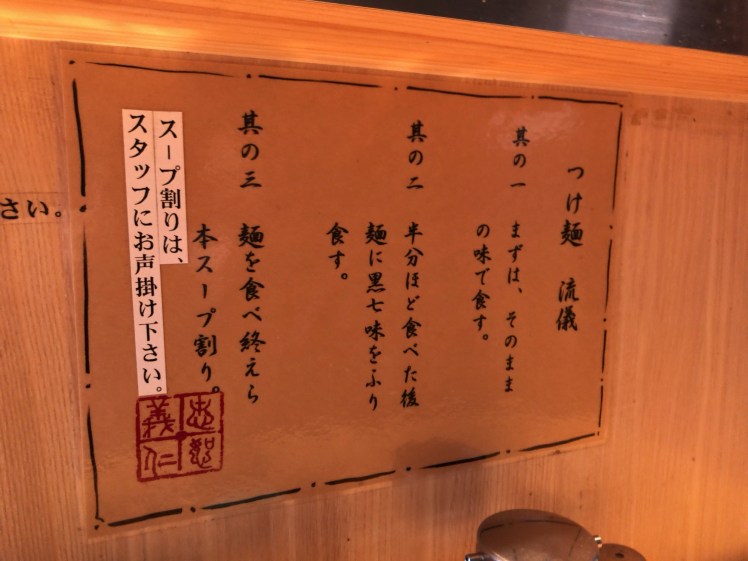 つけ麺　流儀
其の一　まずは、そのまま
の味で食す。
其の二　半分ほど食べた後
麺に黒七味をふり
食す。
其の三　麺を食べ終えら
本スープ割り。
スープ割りは、
スタッフにお声掛け下さい。
義仁
さい。